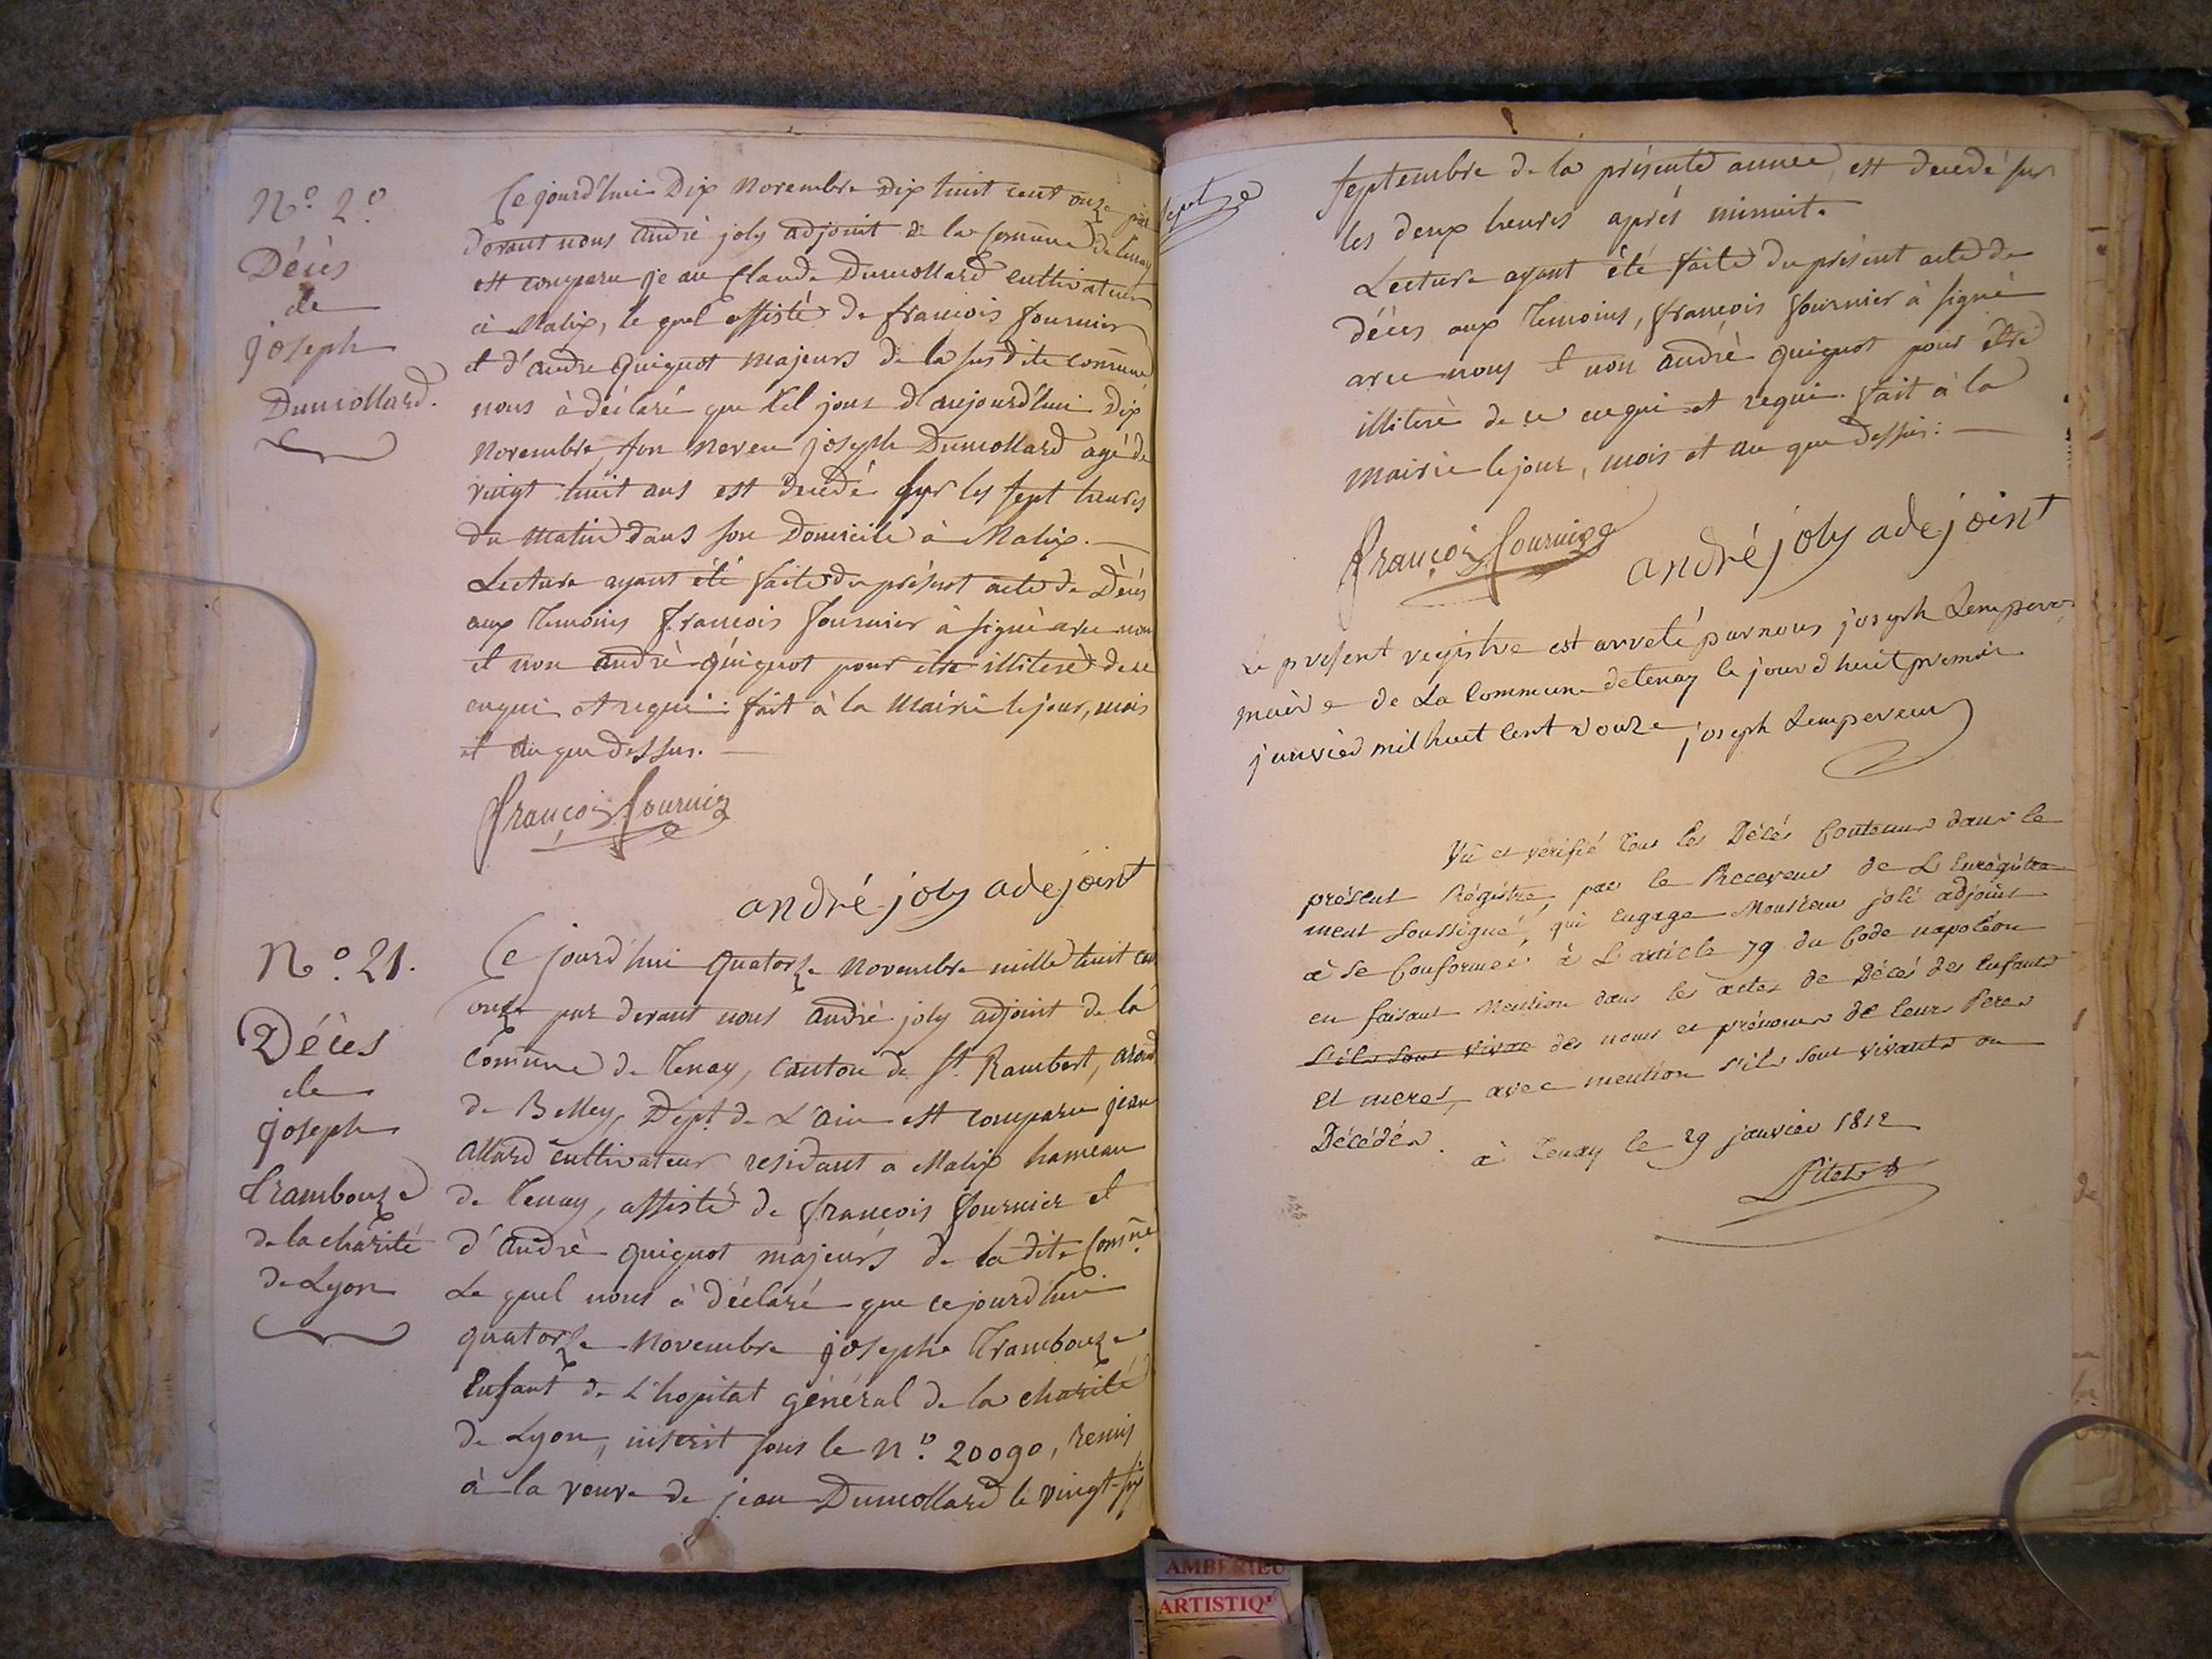 N.º 2º
Décès
de
joseph
Dumollard.
Ce jourd'hui Dix Novembre Dix huit cent onze par
devant nous André joly adjoint de la Com̄une de Tenay
est comparu jean Claude Dumollard cultivateur
à Malix, le quel assisté de françois fournier
et d'andre quiguot majeurs de la sus dite com̄une
nous à déclaré que Cel jour d'aujourd'hui Dix
Novembre, son neveu joseph Dumollard agé de
vingt huit ans est decédé sur les sept heures
du matin dans son Domicile à Malix.
Lecture ayant été faite du présent acte de Décès
aux temoins françois fournier à signé avec nous
et non andrè quiguot pour être illiteré de ce
enqui et requi : fait à la Mairie le jour, mois
et an que dessus.
françois fournier
andré joly adejoint
N.º 21.
Décès
de
joseph
Trambouze
de la charité
de Lyon
Ce jourd'hui quatorze Novembre mille huit cent
onze par devant nous andrè joly adjoint de la
com̄une de Tenay, canton de St. Rambert, arond
de Belley, Dept. de L'ain est comparu jean
allard cultivateur residant a Malix hameau
de Tenay, assisté de françois fournier et
d'andrè quiguot majeurs de la dite Com̄ne
Le quel nous à déclaré que ce jourd'hui
quatorze Novembre joseph Trambouze
Enfant de L'hopital général de la charité
de Lyon, inscrit sous le N.º 20090, remis
à la veuve de jean Dumollard le vingt-six
sept
septembre de la présente année, est decedé sur
les deux heures après minuit.
Lecture ayant été faite du présent acte de
décès aux temoins, françois fournier à signé
avec nous et non andrè quiguot pour être
illiteré de ce enqui et requi. fait à la
mairie le jour, mois et an que dessus :
françois fournier
andré joly adejoint
Le present registre est arreté par nous joseph Lempereur
maire de La Commune de tenay le jourd huit premier
janvier mil huit cent douze joseph Lempereur
Vû et vérifié tous les Décés Contenus dans le
présent Régistre, par le Receveur de L'Enregistre
ment soussigné, qui engage Monsieur joli adjoint
à se Conformer à L'article 79 du Code napoléon
en faisant Mention dans les actes de Décés des enfants
s'ils sont vivan des noms et prénoms de leurs Peres
et meres, avec mention s'ils sont vivants ou
Décédés. à Tenay le 29 janvier 1812
AMBERIEU
ARTISTIQ'